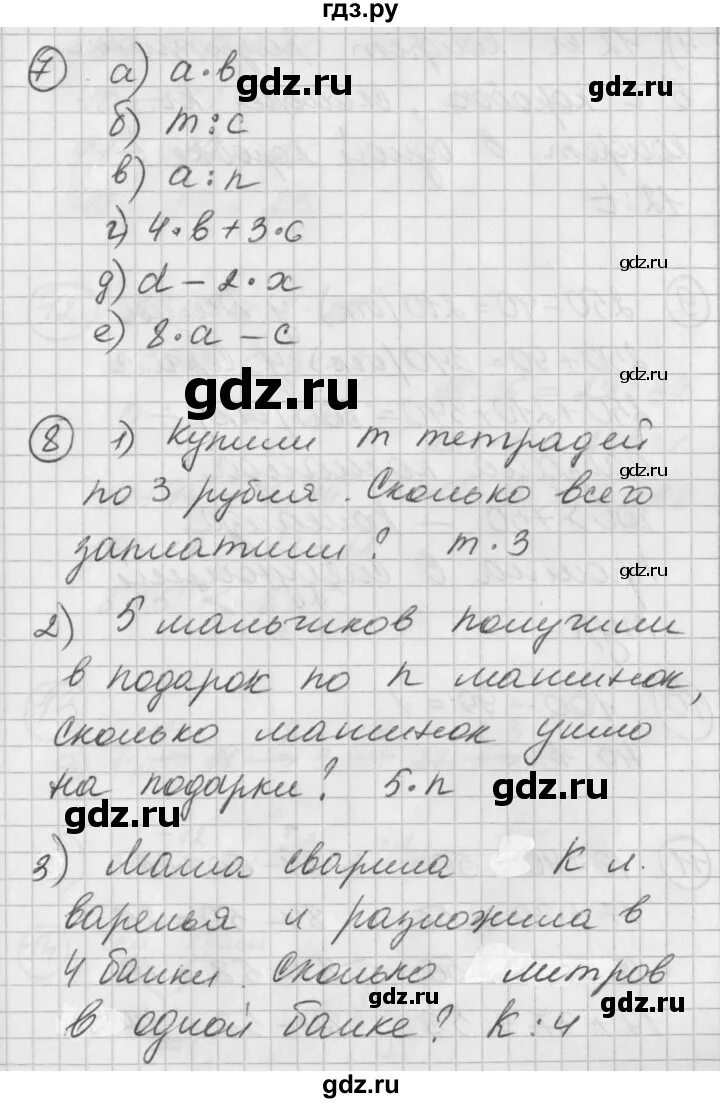 гдз.ру
7 а) а·в
gdz.ru
gdz.ru
б) m:c
в) а:n
г) 4·в+3·6
gdz.ru
д) d-2·x
е) 8·а-с
gdz.ru
gdz.ru
8 1) Купили m тетрадей
gdz.ru
по 3 рубля. Сколько всего
заплатили? m·3
gdz.ru
2) 5 мальчиков получили
в подарок по n машинок,
сколько машинок ушло
на подарки? 5·n
gdz.ru
gdz.ru
3) Маша сварила К л.
варенья и разложила в
4 банки. Сколько литров
gdz.ru
gdz.ru
в одной банке? К:4
gdz.ru